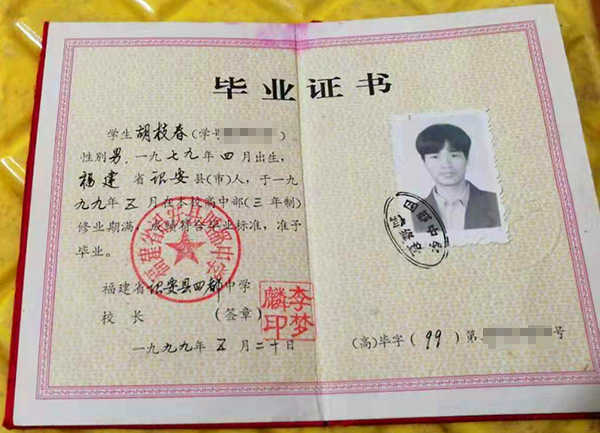 毕业证书
学生胡枝春(学号 )
性别男,一九七九年四月出生,
福建省诏安县(市)人,于一九
九九年五月在本校高中部(三年制)
修业期满,成绩符合毕业标准,准予
毕业。
福建省诏安县四都中学
校长 (签章)
李梦麟印
一九九九年五月二十日
福建省诏安县四都中学
(高)毕字(99)第 号